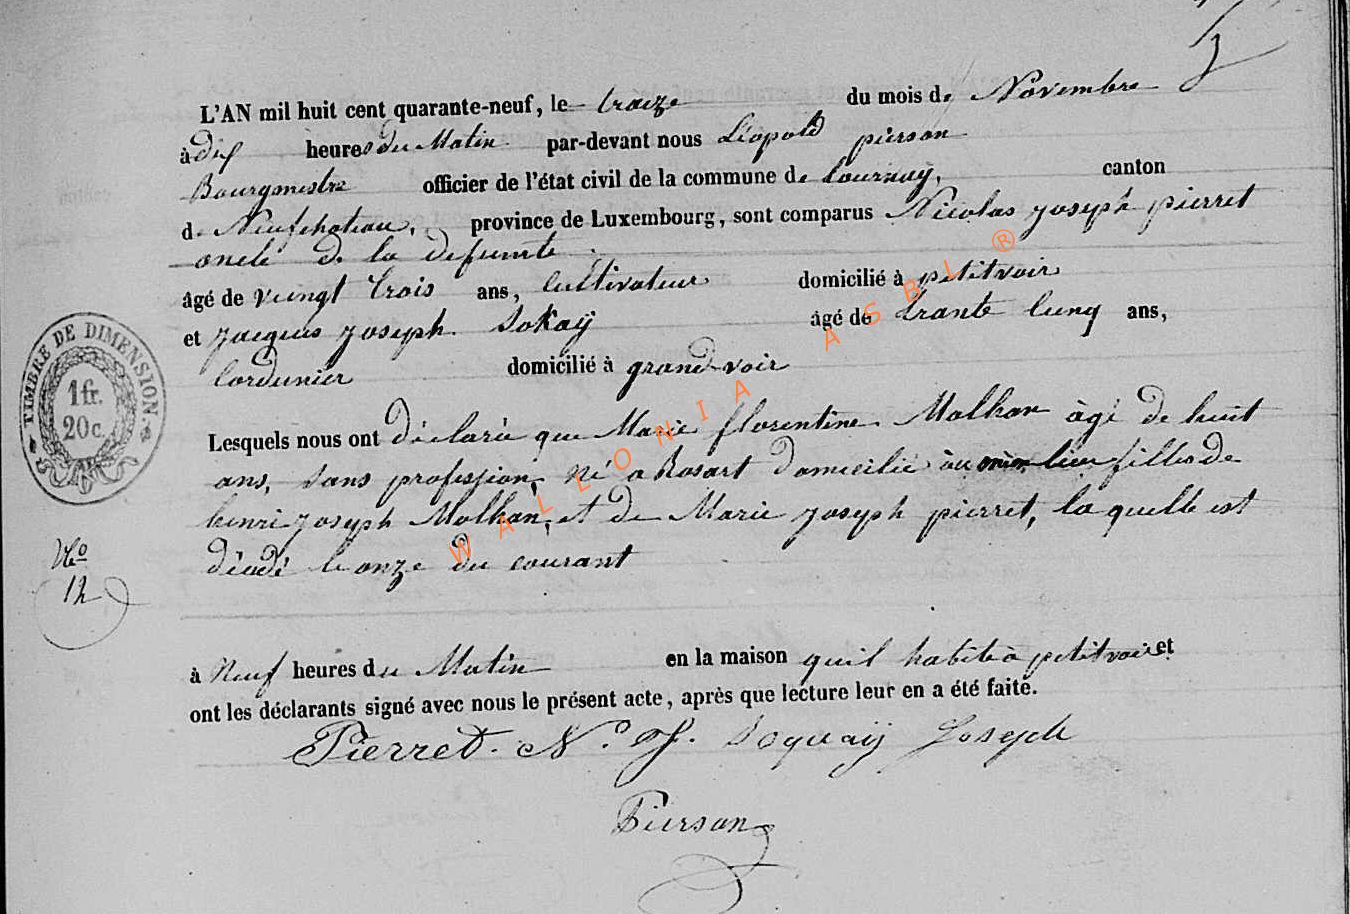 L'AN mil huit cent quarante-neuf, le traize du mois de Novembre
à dix heures du Matin par-devant nous Léopold pierson
Bourgmestre officier de l'état civil de la commune de tournay, canton
de Neufchateau, province de Luxembourg, sont comparus Nicolas joseph pierret
oncle de la defunte
âgé de vuingt trois ans, Cultivateur domicilié à petitvoir
et jacques joseph Sokaÿ âgé de trante cunq ans,
Cordunier domicilié à grandvoir
Lesquels nous ont déclaré que Marie florentine Malhan âgé de huit
ans, sans profession, né a Rosart domicilié au lieu fille de
henri joseph Malhan, et de Marie joseph pierret, la quelle est
décédé le onze du courant
à Neuf heures du Matin en la maison quil habite à petitvoir et
ont les déclarants signé avec nous le présent acte, après que lecture leur en a été faite.
Pierret. N. J. Soquaÿ Joseph
Pierson
TIMBRE DE DIMENSION
1 fr.
20 c.
No
12
WALLONIA ASBL ®